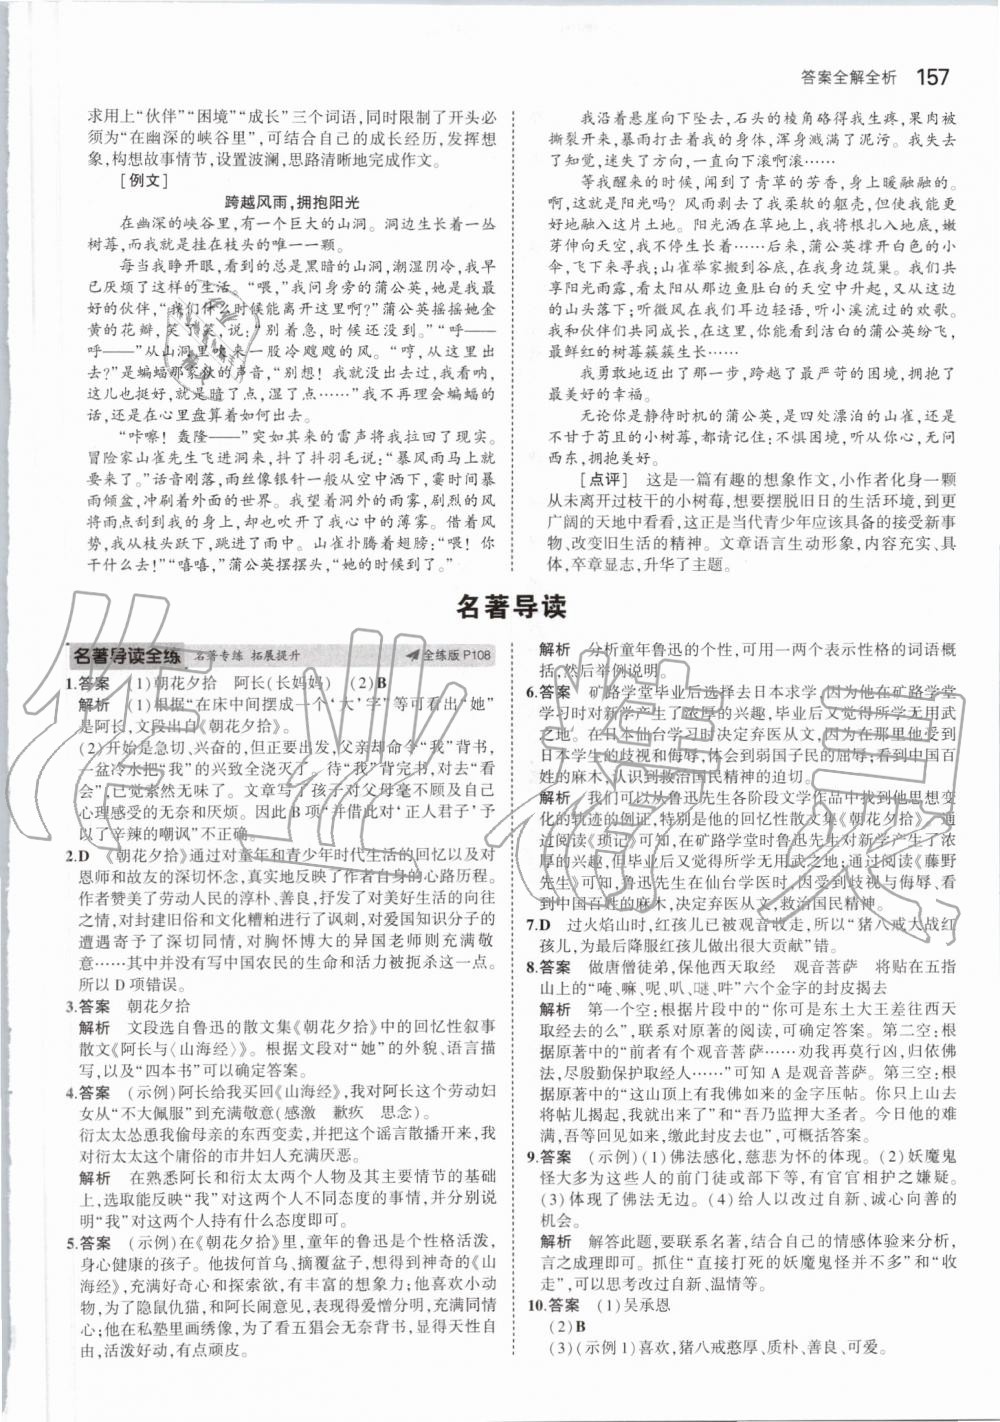 答案全解全析 157
求用上“伙伴”“困境”“成长”三个词语,同时限制了开头必
须为“在幽深的峡谷里”,可结合自己的成长经历,发挥想
象,构想故事情节,设置波澜,思路清晰地完成作文。
[例文]
跨越风雨,拥抱阳光
在幽深的峡谷里,有一个巨大的山洞。洞边生长着一丛
树莓,而我就是挂在枝头的唯一一颗。
每当我睁开眼,看到的总是黑暗的山洞,潮湿阴冷,我早
已厌烦了这样的生活。“喂,”我问身旁的蒲公英,她是我最
好的伙伴,“我们什么时候能离开这里啊?”蒲公英摇摇她金
黄的花瓣,笑了笑,说:“别着急,时候还没到。”“呼——
呼——”从山洞里吹来一股冷飕飕的风。“哼,从这里出
去?”是蝙蝠那家伙的声音,“别想!我都没出去过!我觉得
这儿也挺好,就是暗了点,湿了点……”我不再理会蝙蝠的
话,还是在心里盘算着如何出去。
“咔嚓!轰隆——”突如其来的雷声将我拉回了现实。
冒险家山雀先生飞进洞来,抖了抖羽毛说:“暴风雨马上就
要来了。”话音刚落,雨丝像银针一般从空中洒下,霎时间暴
雨倾盆,冲刷着外面的世界。我望着洞外的雨雾,剧烈的风
将雨点刮到我的身上,却也吹开了我心中的薄雾。借着风
势,我从枝头跃下,跳进了雨中。山雀扑腾着翅膀:“喂!你
干什么去!”“嘻嘻,”蒲公英摆摆头,“她的时候到了。”
我沿着悬崖向下坠去,石头的棱角硌得我生疼,果肉被
撕裂开来,暴雨打击着我的身体,浑身溅满了泥污。我失去
了知觉,迷失了方向,一直向下滚啊滚……
等我醒来的时候,闻到了青草的芳香,身上暖融融的。
啊,这就是阳光吗?风雨剥去了我柔软的躯壳,但使我能更
好地融入这片土地。阳光洒在草地上,我将根扎入大地,嫩
芽伸向天空,我不停生长着……后来,蒲公英撑开白色的小
伞,飞到我的身旁;山雀举家搬到谷底,在我身边筑巢。我们共
享阳光雨露,看一道道晨光从鱼肚白的天空中升起,又从这边
的山头落下;听微风在我们耳边轻语,听小溪流过的欢歌。
我和伙伴们共同成长,在这里,你能看到洁白的蒲公英纷飞,
最鲜红的树莓簇簇生长……
我勇敢地迈出了那一步,跨越了最严苛的困境,拥抱了
最美好的幸福。
无论你是静待时机的蒲公英,是四处漂泊的山雀,还是
不甘于苟且的小树莓,都请记住:不惧困境,历尽风雨,无问
西东,拥抱美好。
[点评] 这是一篇有趣的想象作文,小作者化身一颗
从未离开过枝干的小树莓,想要摆脱旧日的生活环境,到更
广阔的天地中看看,这正是当代青少年应该具备的接受新事
物、改变旧生活的精神。文章语言生动形象,内容充实、具
体,卒章显志,升华了主题。
名著导读
名著导读全练 名著专练 拓展提升 全练版 P108
1.答案 (1)朝花夕拾 阿长(长妈妈) (2)B
解析 (1)根据“在床中间摆成一个‘大’字”等可看出“她”
是阿长,文段出自《朝花夕拾》。
(2)开始是急切、兴奋的,但正要出发,父亲却命令“我”背书,
一盆冷水把“我”的兴致全浇灭了。待“我”背完书,对去“看
会”,已觉索然无味了。文章写了孩子对父母毫不顾及自己
心理感受的无奈和厌烦。因此 B 项“并借此对‘正人君子’予
以了辛辣的嘲讽”不正确。
2.D 《朝花夕拾》通过对童年和青少年时代生活的回忆以及对
恩师和故友的深切怀念,真实地反映了作者自身的心路历程。
作者赞美了劳动人民的淳朴、善良,抒发了对美好生活的向往
之情,对封建旧俗和文化糟粕进行了讽刺,对爱国知识分子的
遭遇寄予了深切同情,对胸怀博大的异国老师则充满敬
意……其中并没有写中国农民的生命和活力被扼杀这一点。
所以 D 项错误。
3.答案 朝花夕拾
解析 文段选自鲁迅的散文集《朝花夕拾》中的回忆性叙事
散文《阿长与〈山海经〉》。根据文段对“她”的外貌、语言描
写,以及“四本书”可以确定答案。
4.答案 (示例)阿长给我买回《山海经》,我对阿长这个劳动妇
女从“不大佩服”到充满敬意(感激 歉疚 思念)。
衍太太怂恿我偷母亲的东西变卖,并把这个谣言散播开来,我
对衍太太这个庸俗的市井妇人充满厌恶。
解析 在熟悉阿长和衍太太两个人物及其主要情节的基础
上,选取能反映“我”对这两个人不同态度的事情,并分别说
明“我”对这两个人持有什么态度即可。
5.答案 (示例)在《朝花夕拾》里,童年的鲁迅是个性格活泼,
身心健康的孩子。他拔何首乌、摘覆盆子,想得到神奇的《山
海经》,充满好奇心和探索欲,有丰富的想象力;他喜欢小动
物,为了隐鼠仇猫,和阿长闹意见,显得爱憎分明,充满同情
心;他在私塾里画绣像,为了看五猖会无奈背书,显得天性自
由,活泼好动,有点顽皮。
解析 分析童年鲁迅的个性,可用一两个表示性格的词语概
括,然后举例说明。
6.答案 矿路学堂毕业后选择去日本求学,因为他在矿路学堂
学习时对新学产生了浓厚的兴趣,毕业后又觉得所学无用武
之地。在日本仙台学习时决定弃医从文,因为在那里他受到
日本学生的歧视和侮辱,体会到弱国子民的屈辱;看到中国百
姓的麻木,认识到救治国民精神的迫切。
解析 我们可以从鲁迅先生各阶段文学作品中找到他思想变
化的轨迹的例证,特别是他的回忆性散文集《朝花夕拾》。通
过阅读《琐记》可知,在矿路学堂时鲁迅先生对新学产生了浓
厚的兴趣,但毕业后又觉得所学无用武之地;通过阅读《藤野
先生》可知,鲁迅先生在仙台学医时,因受到歧视与侮辱、看
到中国百姓的麻木,决定弃医从文,救治国民精神。
7.D 过火焰山时,红孩儿已被观音收走,所以“猪八戒大战红
孩儿,为最后降服红孩儿做出很大贡献”错。
8.答案 做唐僧徒弟,保他西天取经 观音菩萨 将贴在五指
山上的“唵、嘛、呢、叭、𡄣、吽”六个金字的封皮揭去
解析 第一个空:根据片段中的“你可是东土大王差往西天
取经去的么”,联系对原著的阅读,可确定答案。第二空:根
据原著中的“前者有个观音菩萨……劝我再莫行凶,归依佛
法,尽殷勤保护取经人……”可知 A 是观音菩萨。第三空:根
据原著中的“这山顶上有我佛如来的金字压帖。你只上山去
将帖儿揭起,我就出来了”和“吾乃监押大圣者。今日他的难
满,吾等回见如来,缴此封皮去也”,可概括答案。
9.答案 (示例)(1)佛法感化,慈悲为怀的体现。(2)妖魔鬼
怪大多为这些人的前门徒或部下等,有官官相护之嫌疑。
(3)体现了佛法无边。(4)给人以改过自新、诚心向善的
机会。
解析 解答此题,要联系名著,结合自己的情感体验来分析,
言之成理即可。抓住“直接打死的妖魔鬼怪并不多”和“收
走”,可以思考改过自新、温情等。
10.答案 (1)吴承恩
(2)B
(3)(示例 1)喜欢,猪八戒憨厚、质朴、善良、可爱。